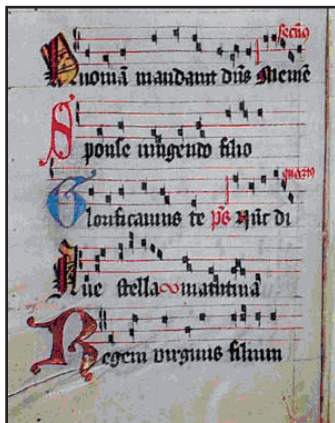 secūs
Quoniā mandauit dn̄s Memē
Sponse iungendo filio
quarto
Glorificamus te p̄s Nūc di
Aue stella matutina
Regem virginis filium